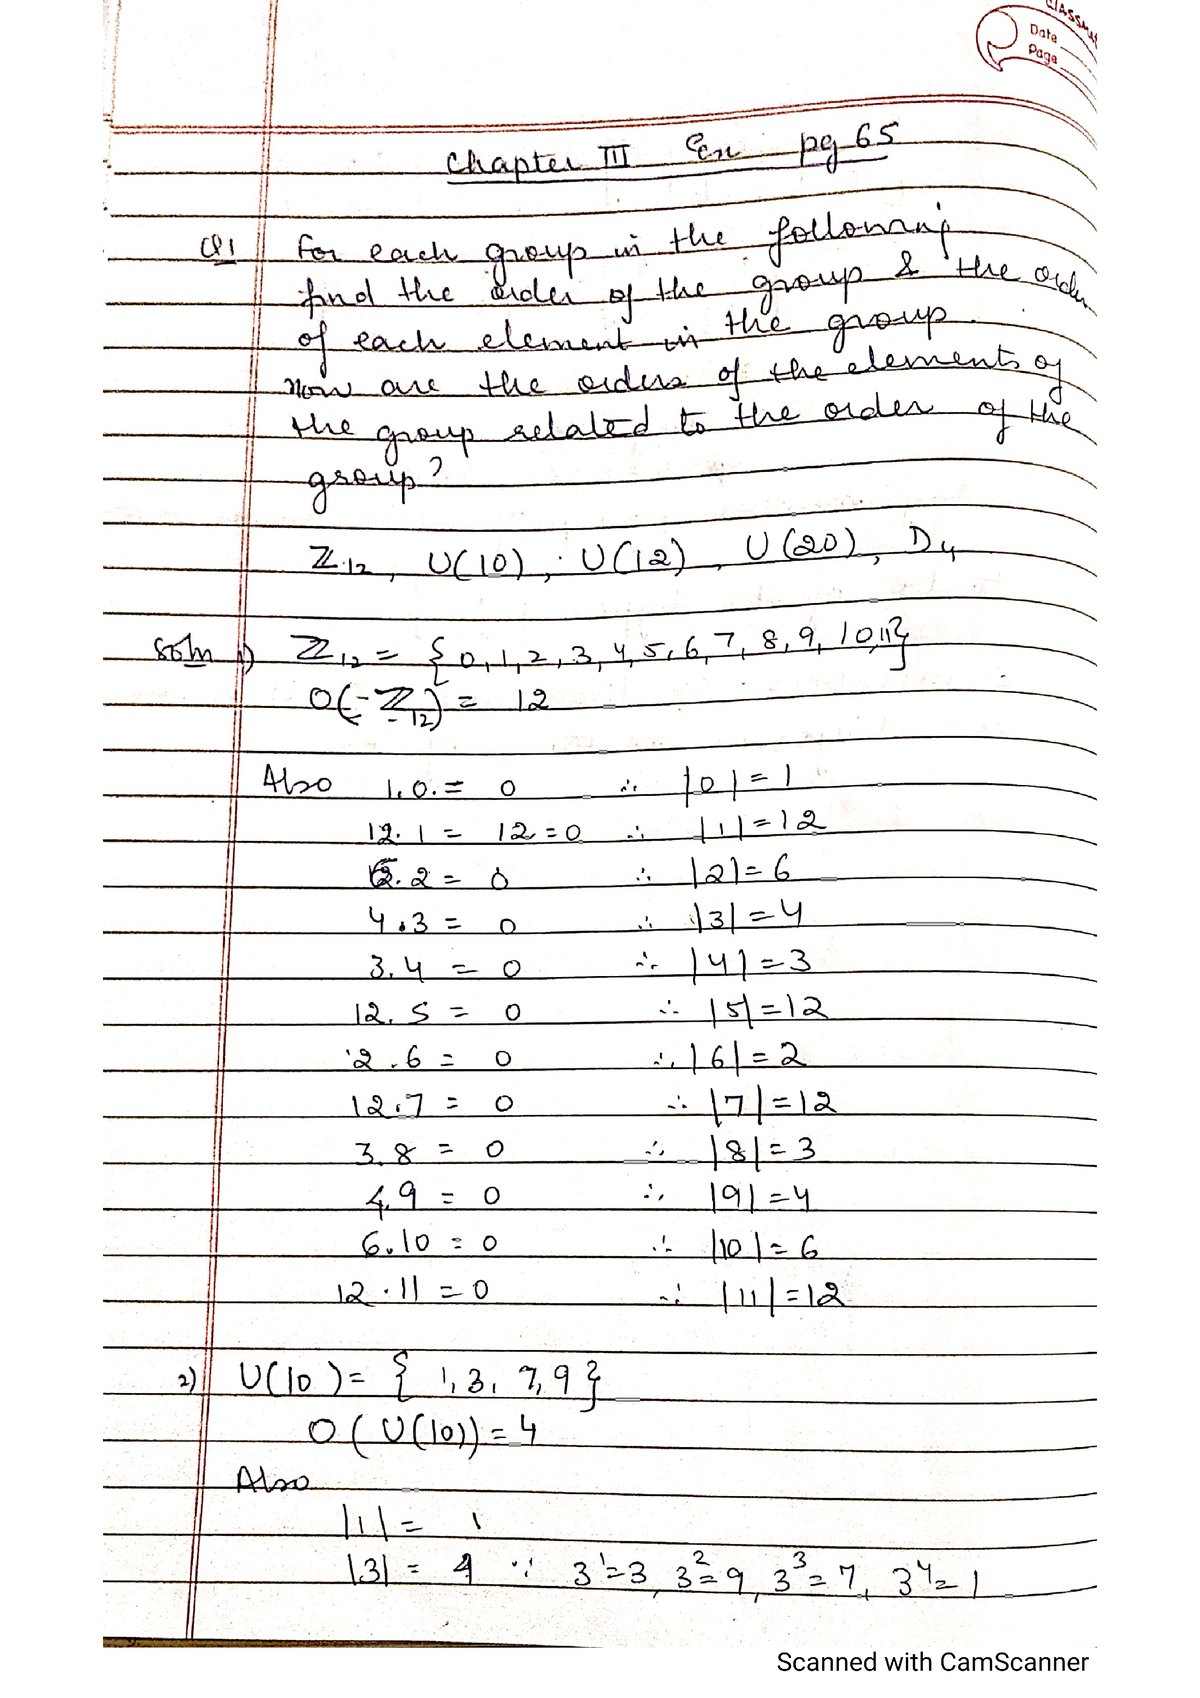 CLASSMATE
Date
Page
Chapter III Ex pg 65
Q1 For each group in the following
find the order of the group & the order
of each element in the group.
How are the orders of the elements of
the group related to the order of the
group?
Z12, U(10), U(12), U(20), D4
Soln 1) Z12 = {0,1,2,3,4,5,6,7,8,9,10,11}
O(Z12) = 12
Also 1.0 = 0 ∴ |0| = 1
12.1 = 12 = 0 ∴ |1| = 12
6.2 = 0 ∴ |2| = 6
4.3 = 0 ∴ |3| = 4
3.4 = 0 ∴ |4| = 3
12.5 = 0 ∴ |5| = 12
2.6 = 0 ∴ |6| = 2
12.7 = 0 ∴ |7| = 12
3.8 = 0 ∴ |8| = 3
4.9 = 0 ∴ |9| = 4
6.10 = 0 ∴ |10| = 6
12.11 = 0 ∴ |11| = 12
2) U(10) = {1, 3, 7, 9}
O(U(10)) = 4
Also
|1| = 1
|3| = 4 ∵ 3¹=3, 3²=9, 3³=7, 3⁴=1
Scanned with CamScanner